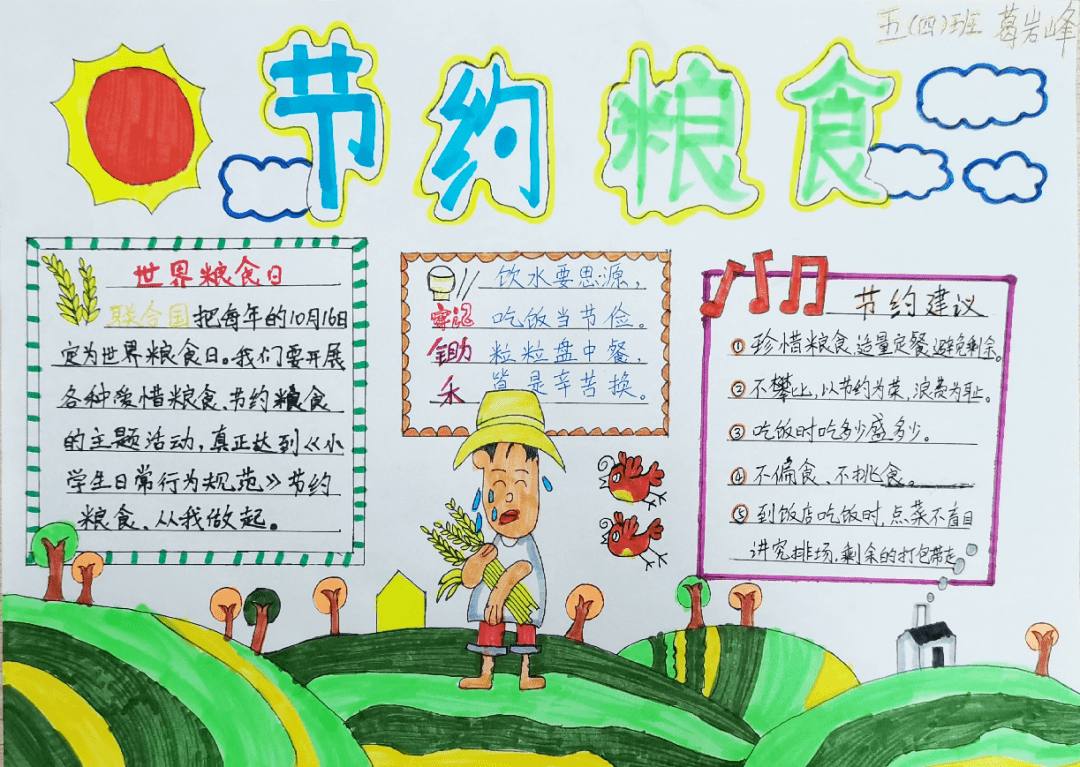 五(四)班 葛岩峰
节约粮食
世界粮食日
联合国把每年的10月16日
定为世界粮食日。我们要开展
各种爱惜粮食、节约粮食
的主题活动，真正达到《小
学生日常行为规范》节约
粮食、从我做起。
饮水要思源，
吃饭当节俭。
粒粒盘中餐，
皆是辛苦换。
禾
节约建议
①珍惜粮食，适量定餐，避免剩余。
②不攀比，以节约为荣，浪费为耻。
③吃饭时吃多少盛多少。
④不偏食、不挑食。
⑤到饭店吃饭时，点菜不盲目
讲究排场，剩余的打包带走。